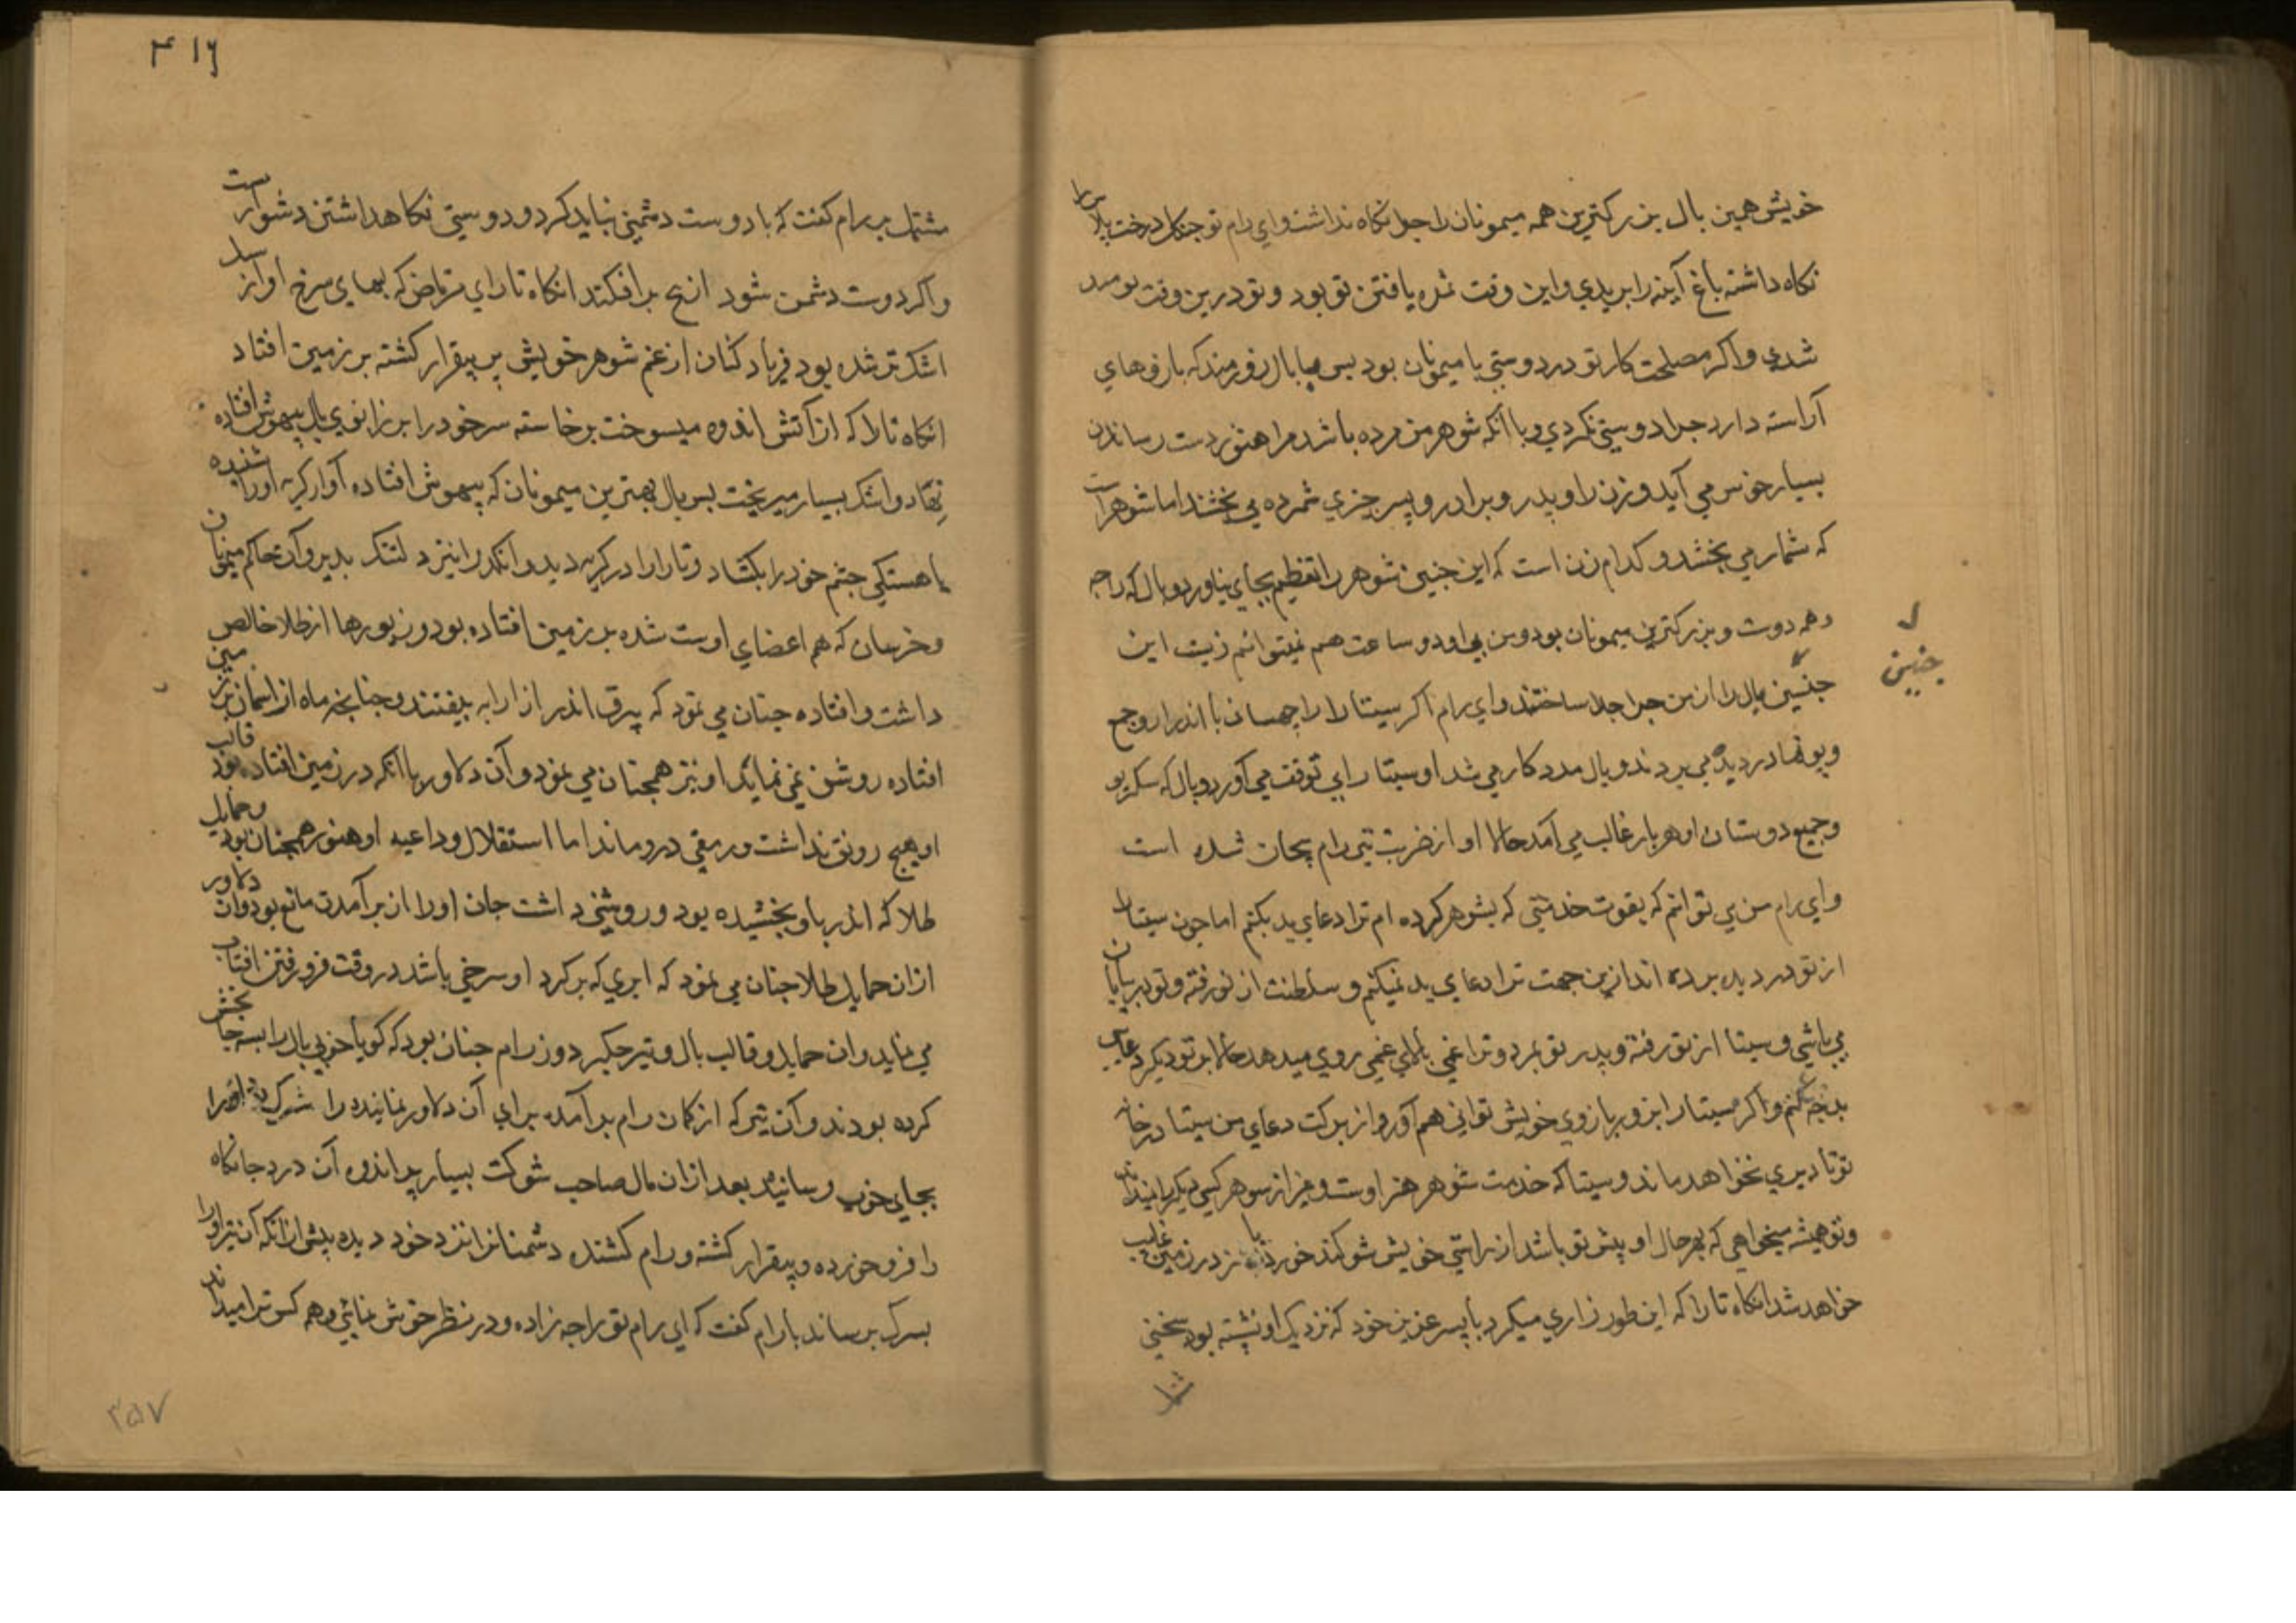 خویش همین بال بزرکترین همه میمونان را جرا نکاه نداشت و ای رام تو جنکل درخت بلا را
نکاه داشته باغ آینه را بریدی و این وقت ثمره یافتن تو بود و تو درین وقت
شدی و اکر مصلحت کار تو در دوستی با میمونان بود پس با بال زورمند که بازوهای
آراسته دارد جرا دوستی نکردی و با آنکه شوهر من مرده باشد مرا هنوز دست رساندن
بسیار خوش می آید و زن را و پدر و برادر و پسر جزی شمرده می بخشند اما شوهر است
که شمار می بخشد و کدام زن است که این جنین شوهر را تعظیم بجای نیاورد و بال که راجه
و هم دوست و بزرکترین میمونان بود و من بی او دو ساعت هم نمیتوانم زیست این
جنین بال را از من جرا جدا ساختند و ای رام اکر سیتا را
جنین
دزدیده می بردند و بال مددکار می شد او سیتا را بی توقف می آورد و بال که سکریو
و جمیع دوستان او هر بار غالب می آمد حالا او از ضربت تیر رام بیجان شده است
و ای رام من می توانم که بقوت خدمتی که بشوهر کرده ام ترا دعای بد بکنم اما جون سیتا را
از تو دزدیده برده اند ازین جهت ترا دعای بد نمیکنم و سلطنت از تو رفته و تو در بیابان
می باشی و سیتا از تو رفته و پدر تو بمرد و ترا غمی بالای غمی روی میدهد حالا بر تو دیکر دعای
بد جه کنم و اکر سیتا را بزور بازوی خویش توانی هم آورد از برکت دعای من سیتا در خانه
تو تا دیری نخواهد ماند و سیتا که خدمت شوهر هنر اوست و غیر از شوهر کسی دیکر را نمیداند
و تو همیشه میخواهی که بهر حال او پیش تو باشد از راستی خویش سوکند خورده باز در زمین غایب
خواهد شد انکاه تارا که این طور زاری میکرد با پسر عزیز خود که نزدیک او نشسته بود سخنی
۳۱۶
مشتمل بر رام کفت که با دوست دشمنی نباید کرد و دوستی نکاهداشتن دشوارست
و اکر دوست دشمن شود از بیخ برافکند انکاه تارای مرتاض که بهای سرخ او از سیل
اشک تر شده بود فریاد کنان از غم شوهر خویش بیقرار کشته بر زمین افتاد
انکاه تارا که از آتش اندوه میسوخت برخاسته سر خود را بر زانوی بال بیهوش افتاده
نهاد و اشک بسیار میریخت پس بال بهترین میمونان که بیهوش افتاده آواز کریه او را شنیده
باهستکی جشم خود را بکشاد و تارا را در کریه دید و انکد را نیز دلتنک بدید و آن حاکم میمونان
و خرسان که هم اعضای او ست شده بر زمین افتاده بود و زیورها از طلا خالص
داشت و افتاده جنان می نمود که بیرق اندر از ارابه بیفتند و جنانجه ماه از اسمان بر زمین
افتاده روشن نمی نماید او نیز همجنان می نمود و آن دلاور با آنکه در زمین افتاده بود قالب
او هیج رونق نداشت و رمقی درو ماند اما استقلال و داعیه او هنوز همجنان بود و حمایل
طلا که اندر باو بخشیده بود و روشنی داشت جان او را از برآمدن مانع بود و آن دلاور
ازان حمایل طلا جنان می نمود که ابری که بر کرد او سرخی باشد در وقت فرو رفتن افتاب
می نماید و ان حمایل و قالب بال و تیر جکردوز رام جنان بود که کویا خوبی بال را بسه جا بخش
کرده بودند و آن تیر که از کمان رام برآمده برای آن دلاور نماینده راه سرک شد او را
بجایی خوب رسانید بعد ازان بال صاحب شوکت بسیار پر اندوه آن درد جانکاه
را فرو خورده و بیقرار کشته و رام کشنده دشمنان را نزد خود دیده پیش ازانکه ان تیر او را
بسرک برساند با رام کفت که ای رام تو راجه زاده و در نظر خوش نمائی و همه کس ترا میداند
۳۵۷